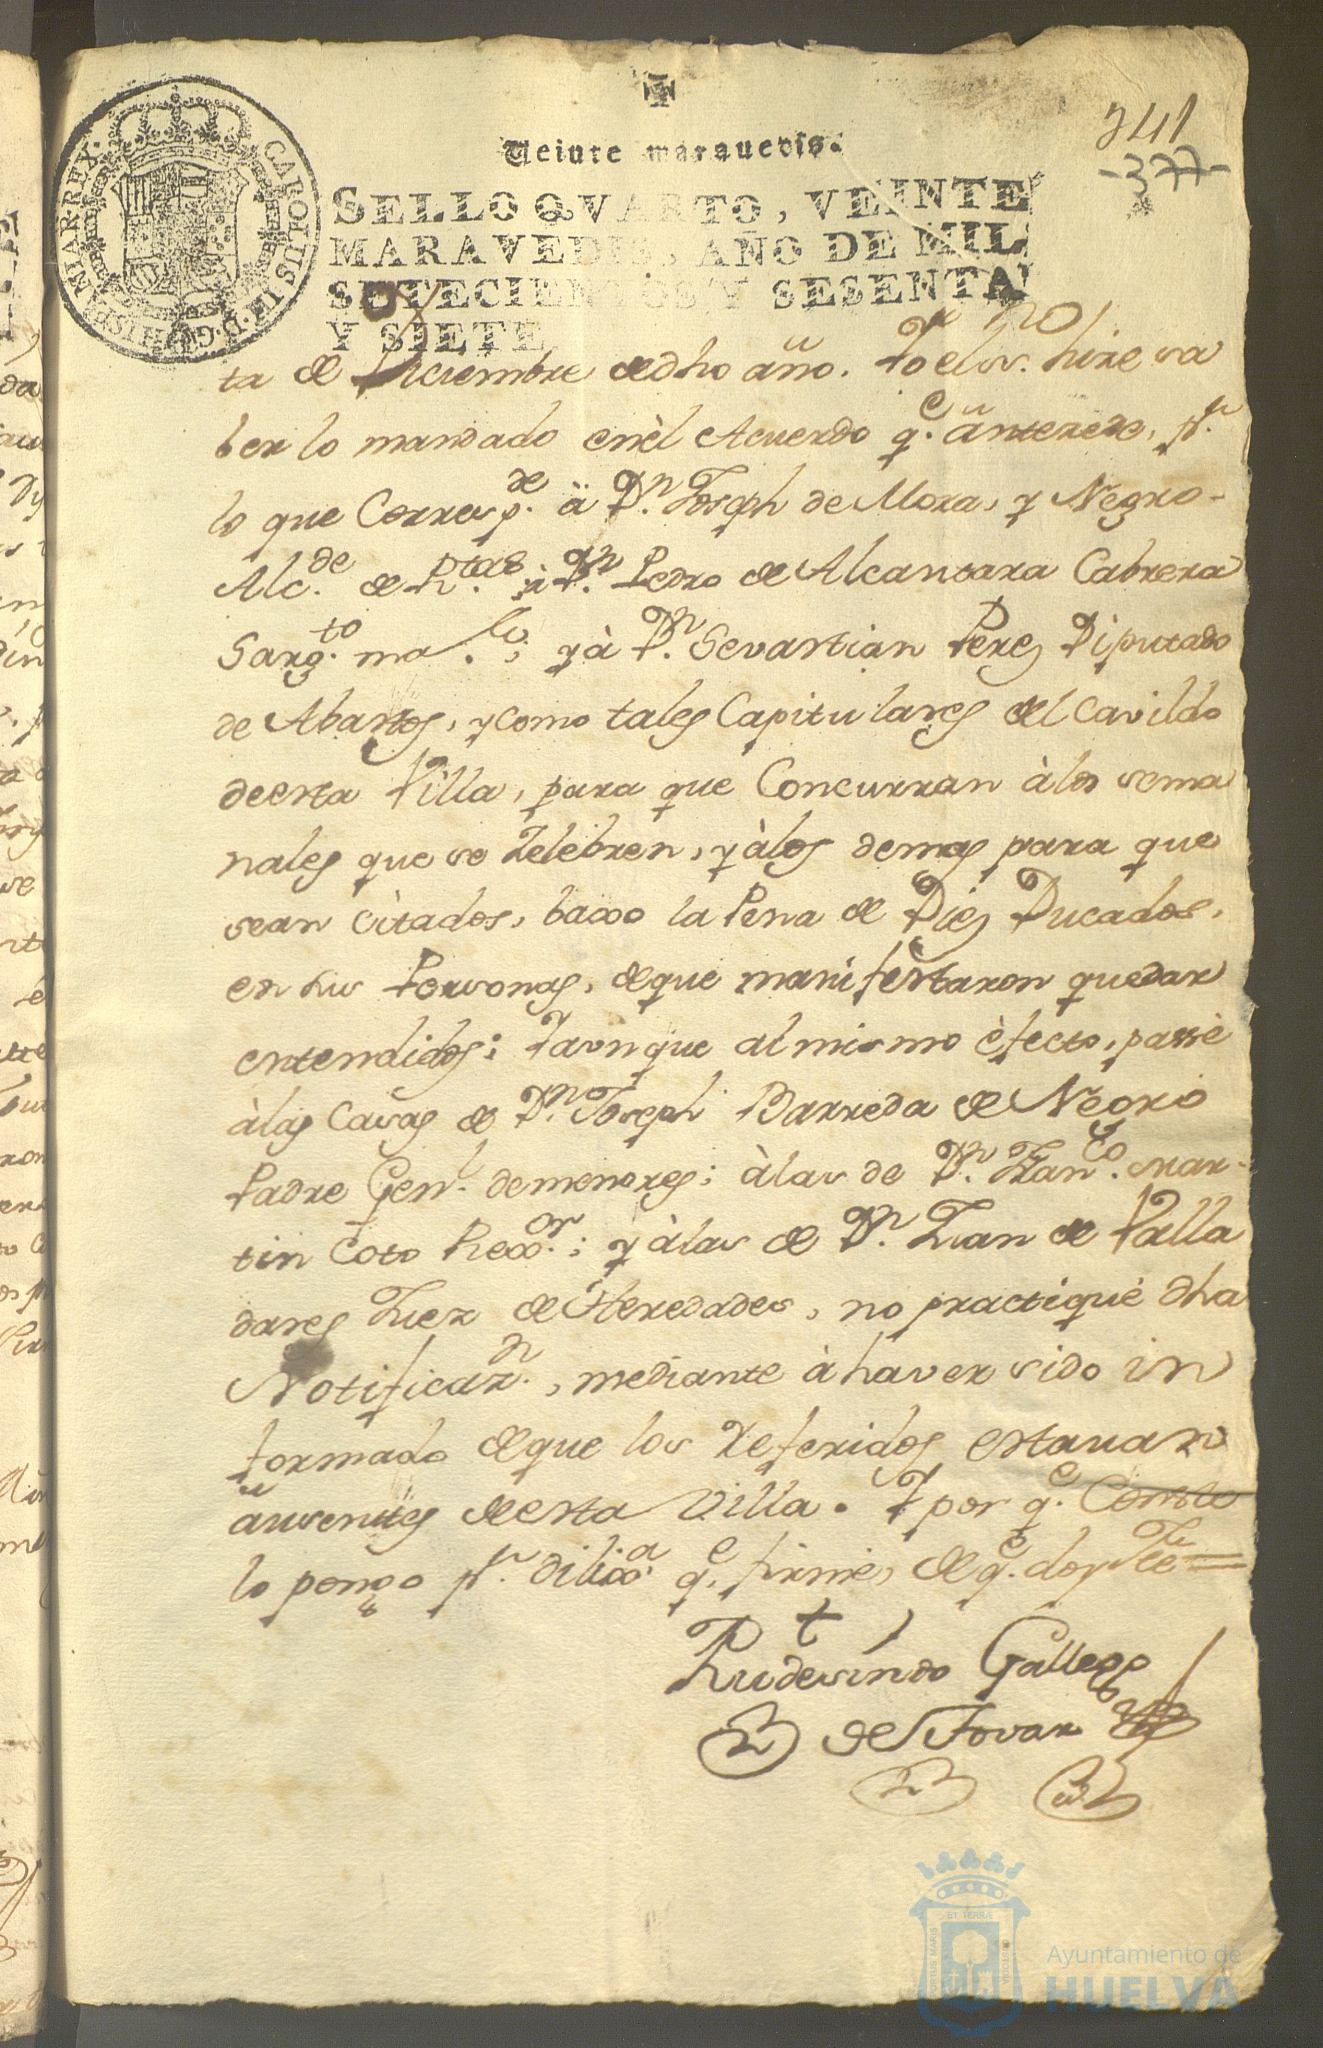 341
-377-
Veinte maravedis.
SELLO QVARTO, VEINTE
MARAVEDIS, AÑO DE MIL
SETECIENTOS Y SESENTA
Y SIETE
CAROLUS III D. G. HISPANIAR. REX.
ta de Diciembre de dho año. Yo el ssno. hize sa
ber lo mandado en èl Acuerdo q.e ântezede, p.r
lo que Corresp.de â D.n Joseph de Mora, y Negro-
Alc.de de R.tas à D.n Pedro de Alcantara Cabrera
Sarg.to ma.lo; y à D.n Sevastian Perez Diputado
de Abastos, y como tales Capitulares del Cavildo
de esta Villa, para que Concurran à los sema
nales que se Zelebren, y à los demas para que
sean Citados, baxo la Pena de Diez Ducados,
en sus Personas, de que manifestaron quedar
entendidos; Y aunque al mismo èfecto, passè
à las Casas de D.n Joseph Barreda de Negro
Padre Gen.l de menores; à las de D.n Fran.co Mar-
tin Coto Rexx.or; y à las de D.n Juan de Valla
dares Juez de Heredades, no practiquè dha
Notificaz.n, mediante à haver sido in
formado de que los referidos estavan
ausentes de esta Villa. Y por q.e Conste
lo pongo p.r dilixx.a q.e firmè, de q.e doy Fe =
Rudesindo Gallego
de Tovar
Ayuntamiento de
HUELVA